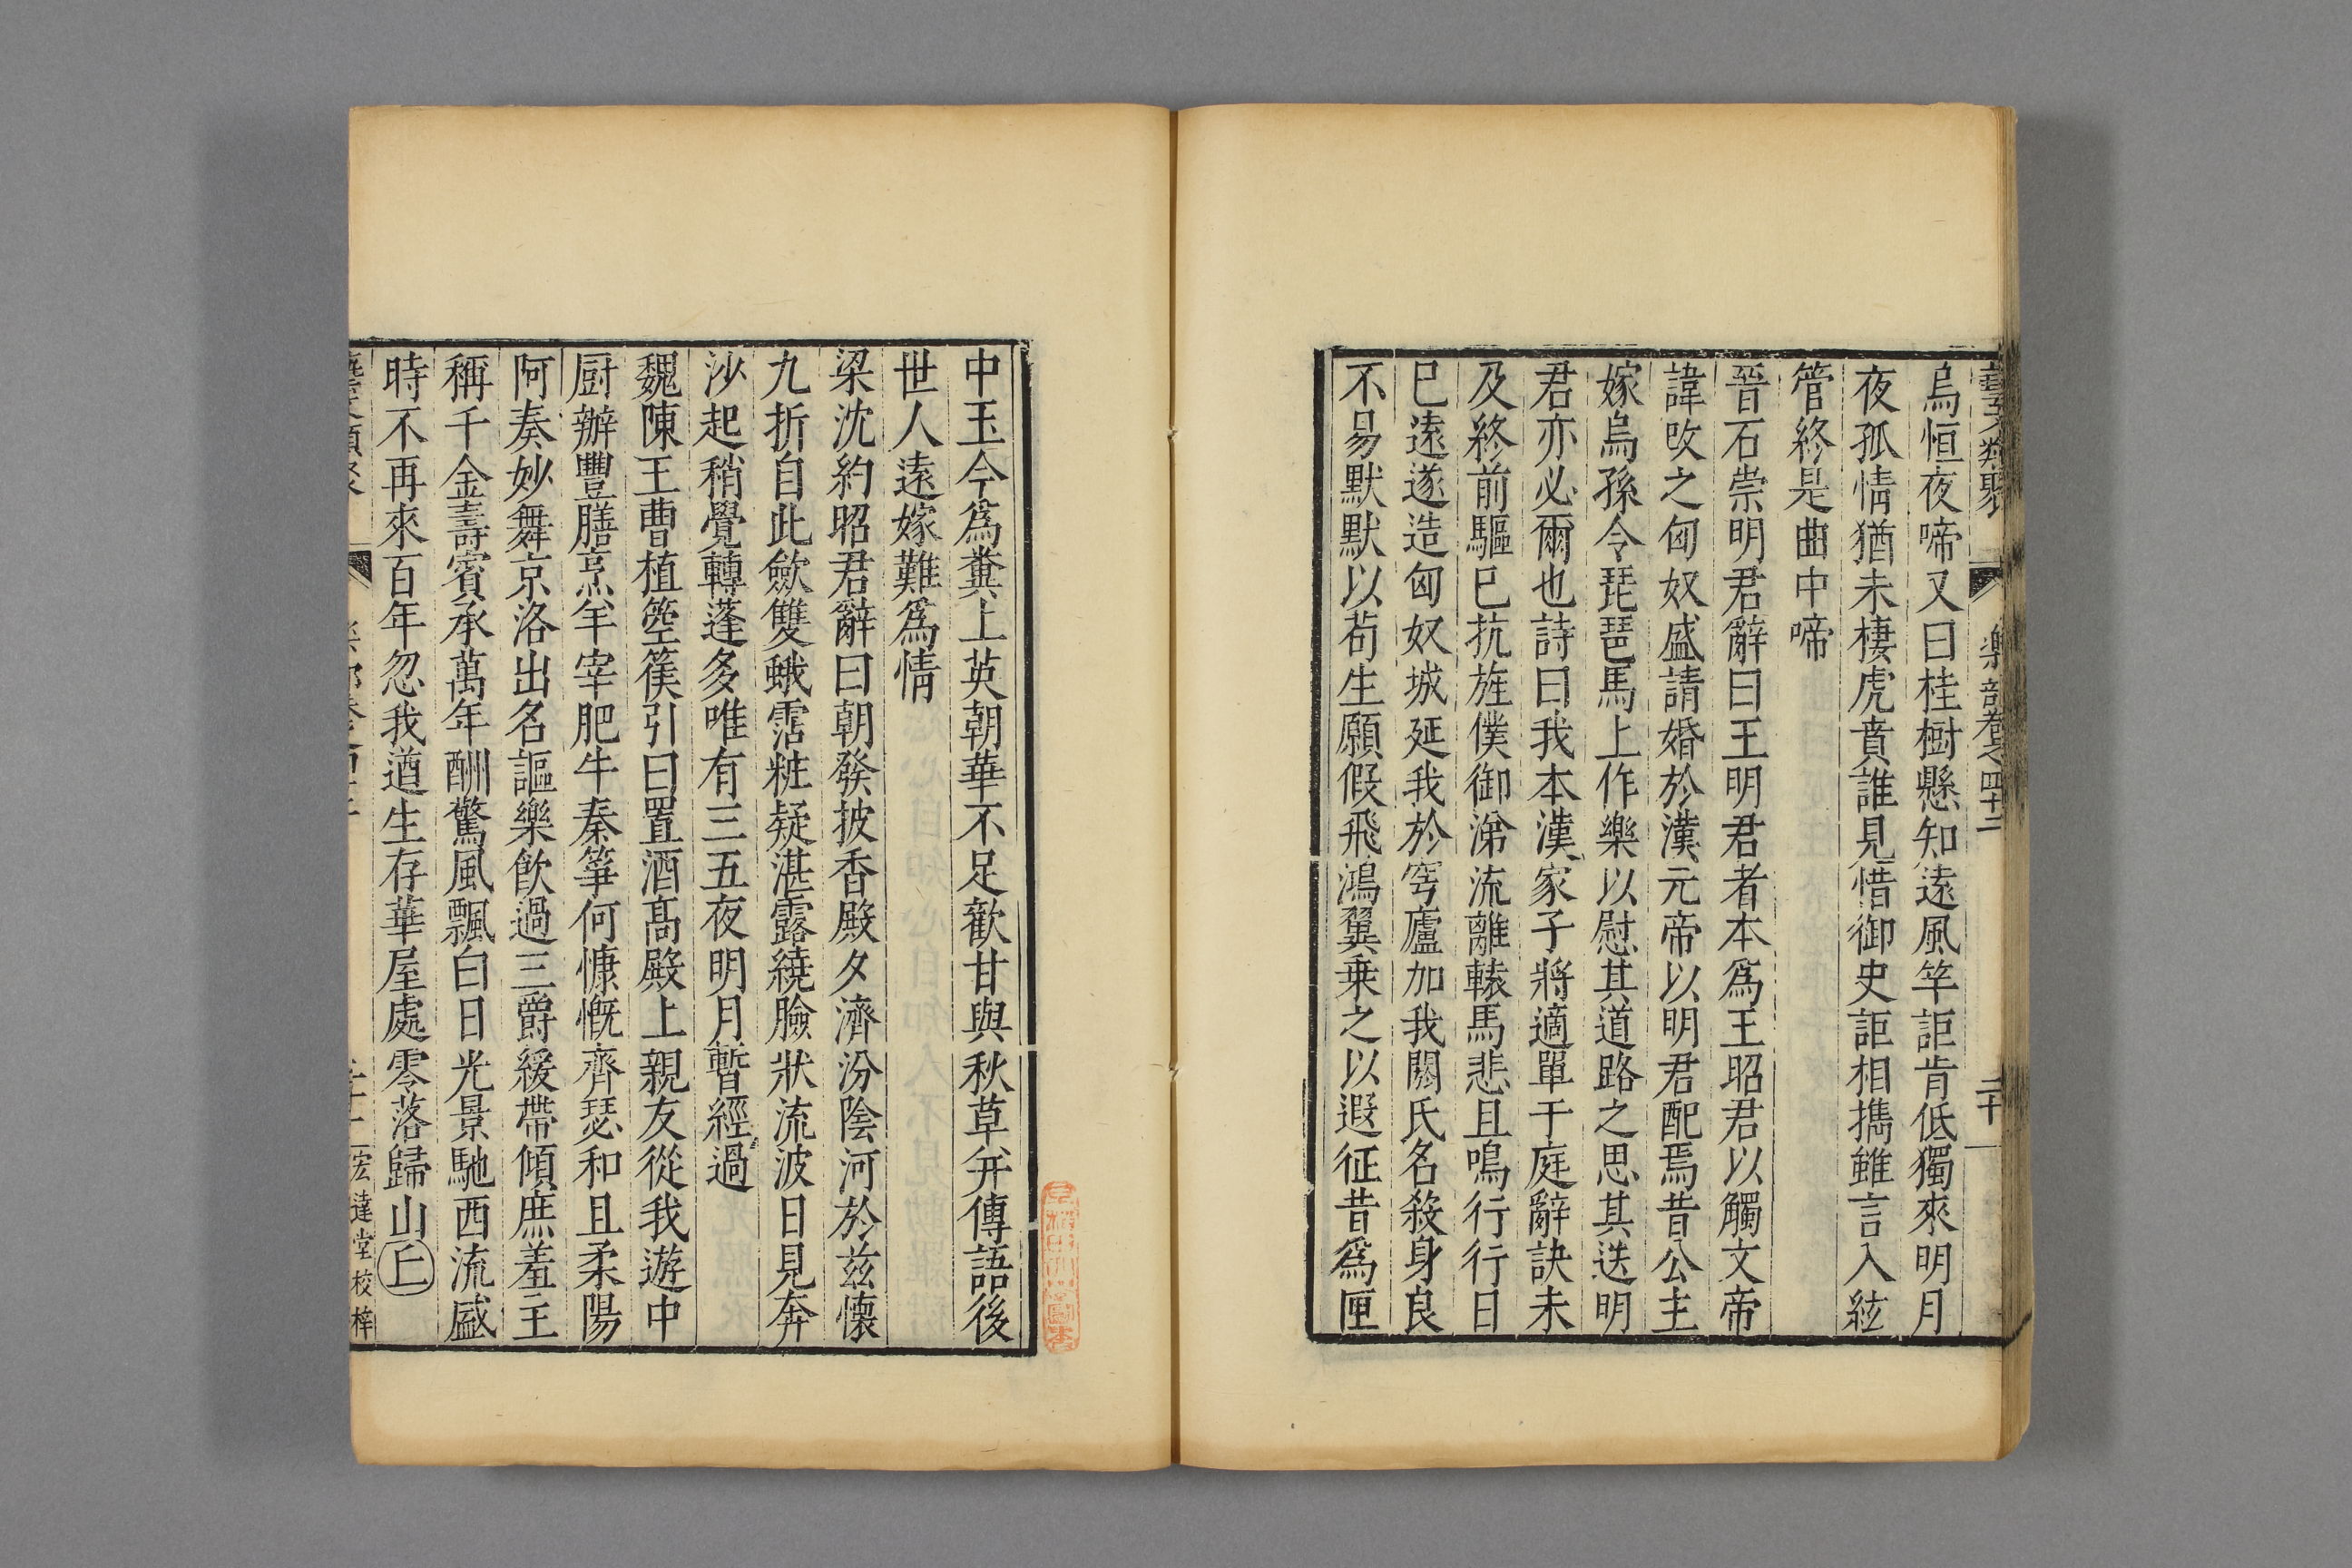 藝文類聚 樂部卷之四十二 二十
烏恒夜啼又曰桂樹懸知遠風竿詎肯低獨來明月
夜孤情猶未棲虎賁誰見惜御史詎相擕雖言入絃
管終是曲中啼
晉石崇明君辭曰王明君者本爲王昭君以觸文帝
諱攺之匈奴盛請婚於漢元帝以明君配焉昔公主
嫁烏孫令琵琶馬上作樂以慰其道路之思其送明
君亦必爾也詩曰我本漢家子將適單于庭辭訣未
及終前驅已抗旌僕御涕流離轅馬悲且鳴行行日
已遠遂造匈奴城延我於穹廬加我閼氏名殺身良
不易默默以苟生願假飛鴻翼乗之以遐征昔爲匣
中玉今爲糞上英朝華不足歡甘與秋草并傳語後
世人遠嫁難爲情
梁沈約昭君辭曰朝發披香殿夕濟汾陰河於兹懷
九折自此歛雙蛾霑粧疑湛露繞臉狀流波日見奔
沙起稍覺轉蓬多唯有三五夜明月暫經過
魏陳王曹植箜篌引曰置酒髙殿上親友從我遊中
厨辦豐膳烹羊宰肥牛秦箏何慷慨齊瑟和且柔陽
阿奏妙舞京洛出名謳樂飲過三爵緩帶傾庶羞主
稱千金壽賓承萬年酬驚風飄白日光景馳西流盛
時不再來百年忽我遒生存華屋處零落歸山丘
宏達堂校梓